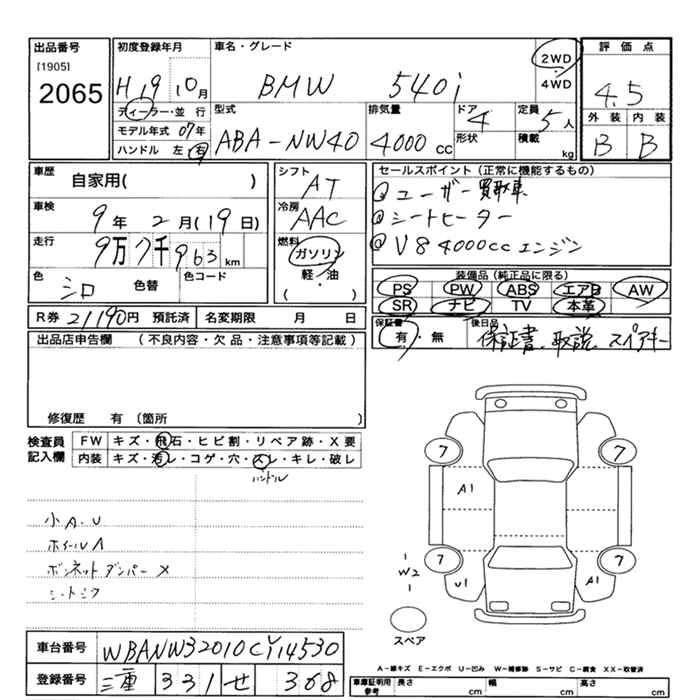 出品番号 初度登録年月 車名・グレード 2WD 評価点
[1905]
2065 H19 10月 BMW 540i 4WD 4.5
ディーラー・並行 型式 排気量 ドア 4 定員 5人 外装 内装
モデル年式 07年 ABA-NW40 4000cc 形状 積載 kg B B
ハンドル 左 右
車歴 自家用( ) シフト AT セールスポイント(正常に機能するもの)
①ユーザー買取車
車検 9年 2月(19日) 冷房 AAC ②シートヒーター
走行 9万7千963km 燃料 ガソリン ③V8 4000ccエンジン
軽・油
( )
色 シロ 色替 色コード 装備品(純正品に限る)
PS PW ABS エアB AW
SR ナビ TV 本革
R券 21190円 預託済 名変期限 月 日 保証書 有・無 後日品 保証書、取説、スペアキー
出品店申告欄 (不良内容・欠品・注意事項等記載)
修復歴 有(箇所 )
検査員 FW キズ・飛石・ヒビ割・リペア跡・X要
記入欄 内装 キズ・汚レ・コゲ・穴・スレ・キレ・破レ
ハンドル
7 7
A1
小A.U
ホイールA
ボンネットダンパーX
シートシワ
7 7
1
W2
1
U1 A1
スペア
車台番号 WBANW32010CY14530
A-線キズ E-エクボ U-凹み W-補修跡 S-サビ C-腐食 XX-交換済
登録番号 三重 331 せ 368 車庫証明用参考 長さ cm 幅 cm 高さ cm